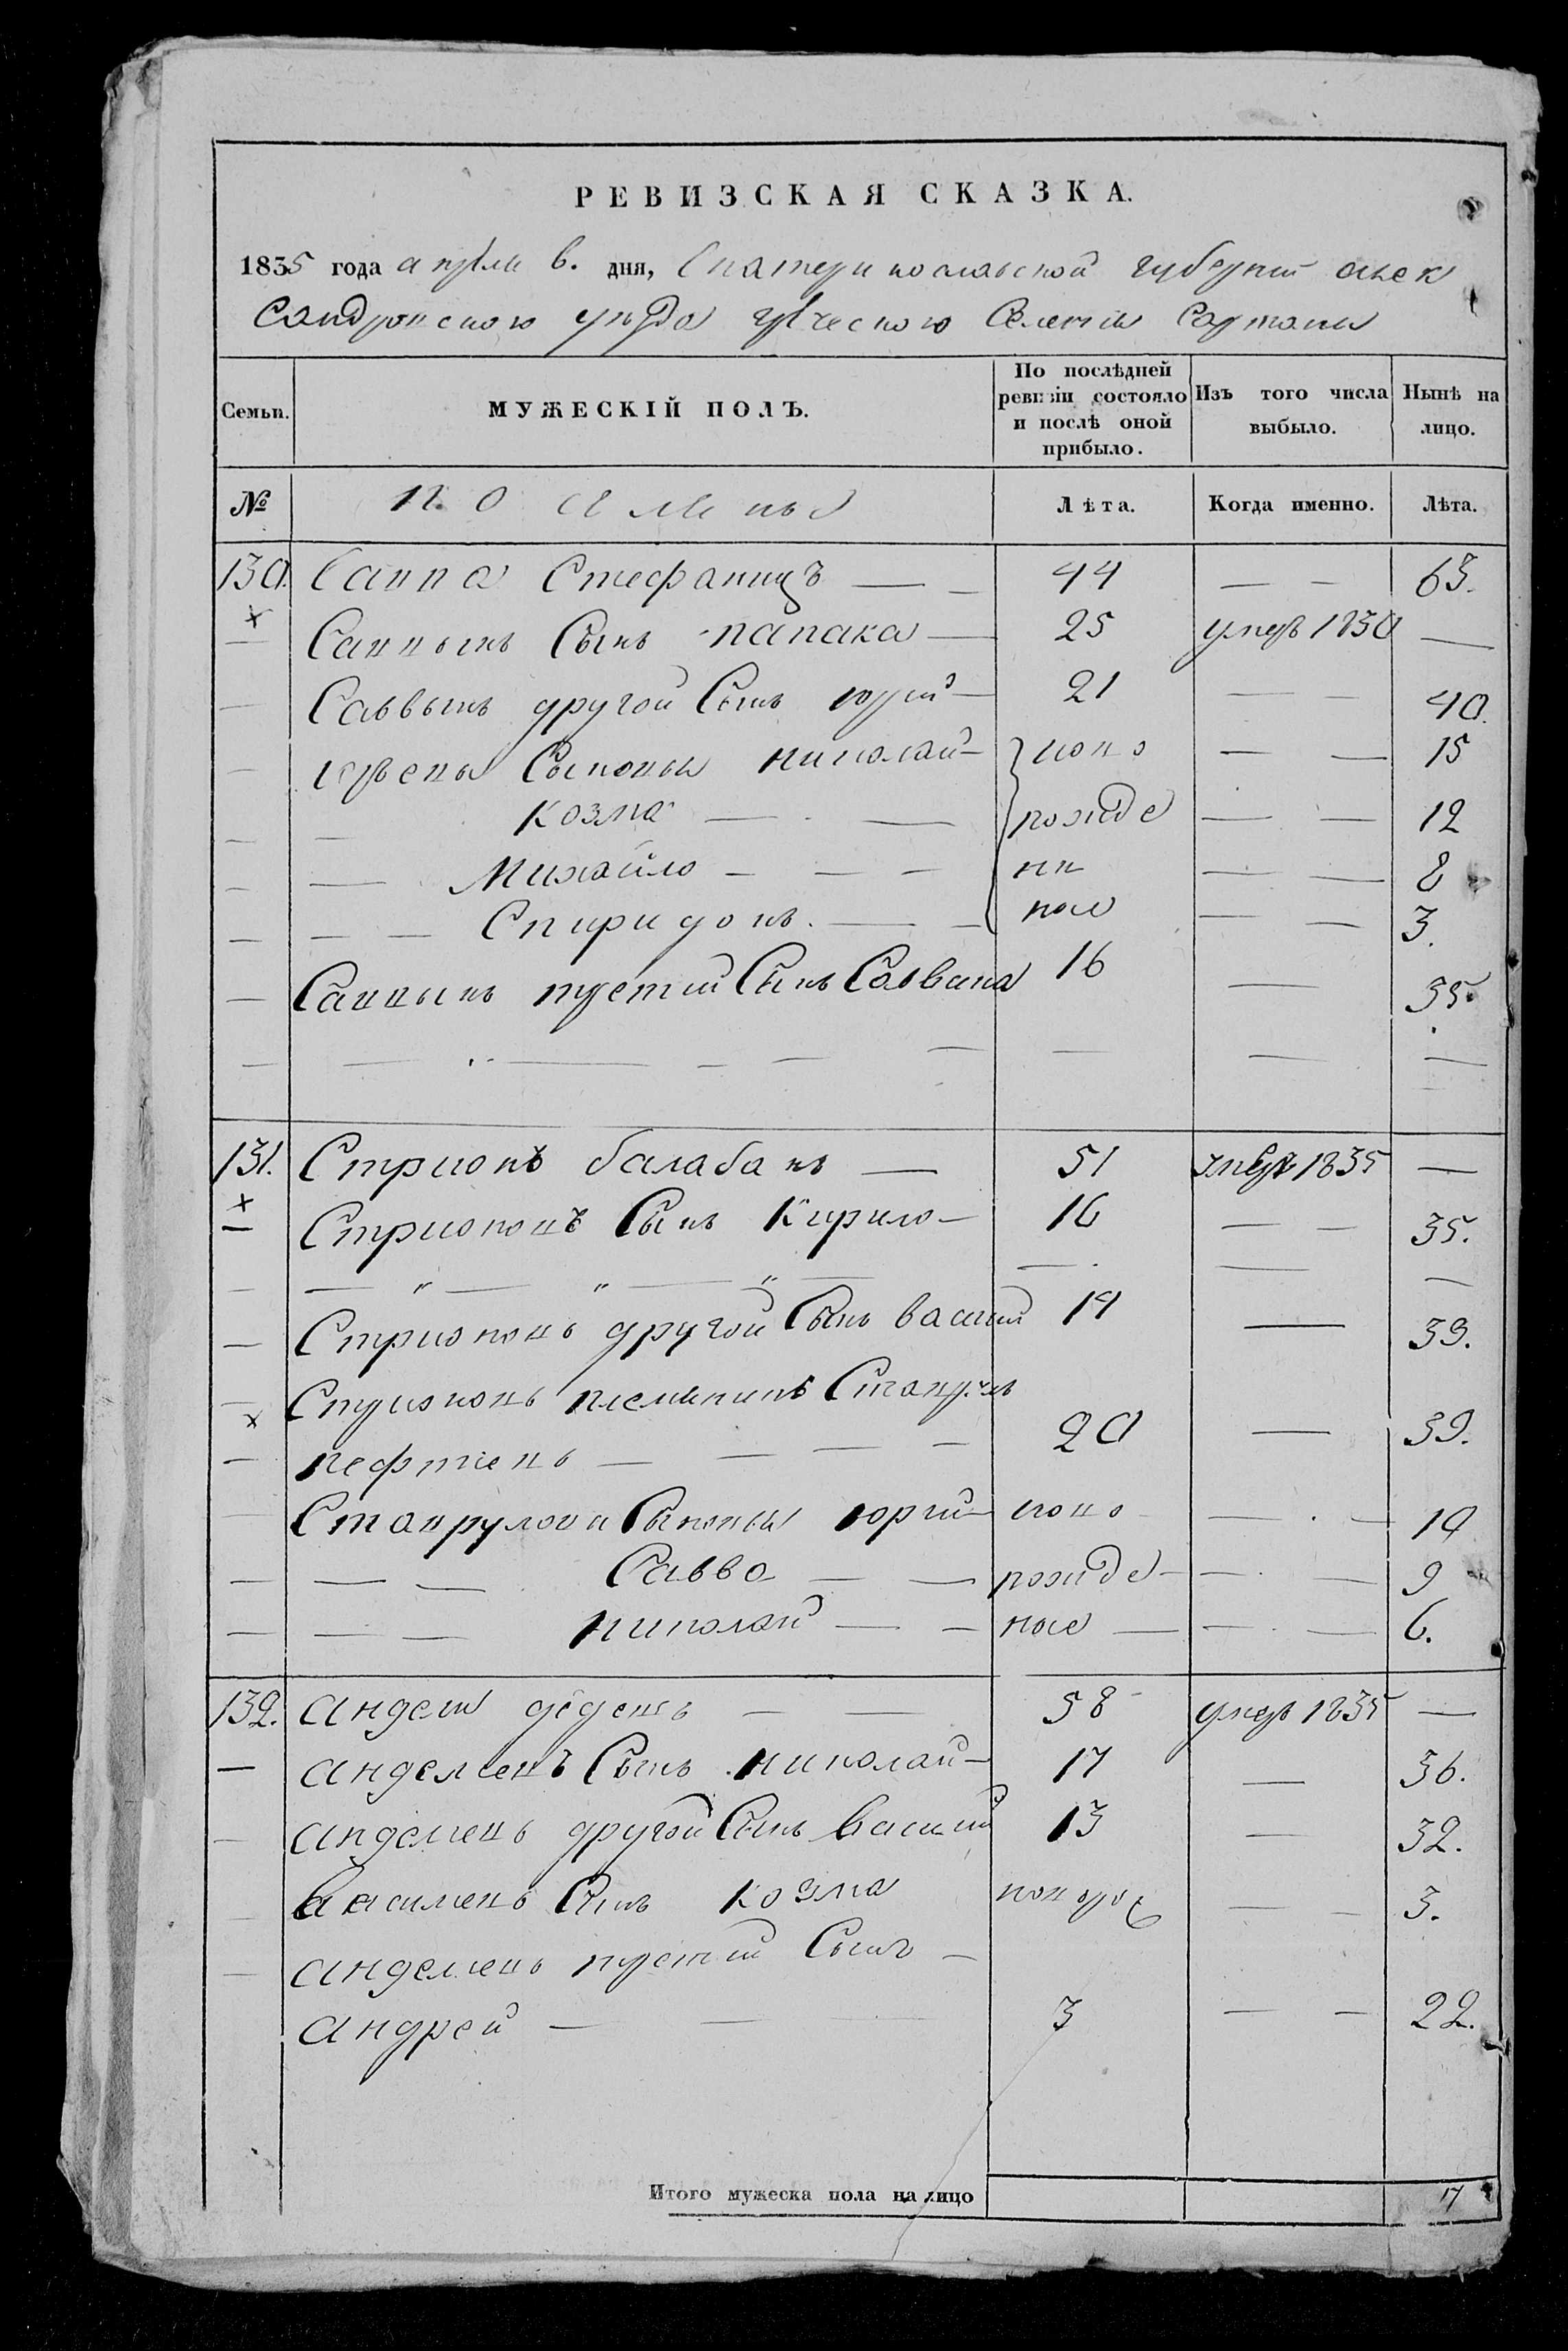 РЕВИЗСКАЯ СКАЗКА.
1835 года апреля 6. дня, Екатеринославской губернии алек
сандровского уезда греческого Селения Сартаны
Семьи. МУЖЕСКІЙ ПОЛЪ. По послѣдней ревизіи состояло и послѣ оной прибыло. Изъ того числа выбыло. Нынѣ на лицо.
№ Лѣта. Когда именно. Лѣта.
130. Савва 44 — — 63.
— сынъ папака — 25 умеръ 1830 —
— Саввынъ другой Сынъ юрий — 21 — — 40.
— юрьевы Сыновья николай — ново — — 15
— козма — — рожде — — 12
— — Михайло — — — нн — — 8
— — — Спиридонъ. — — ные — — 3.
— третий Сынъ 16 — 35.
131. Стрионъ балабанъ — 51 умеръ 1835 —
— Стрионовъ Сынъ Кирило — 16 — — 35.
— Стрионовъ другой Сынъ василий 19 — 39.
— Стрионовъ племяникъ
— — — — 20 — 39.
— Сыновья юрий — ново — — 10
— — — Савва — — рожде — — — 9
— — — николай — — ные — — — 6.
132. андели — — 58 умеръ 1835 —
— анделиевъ Сынъ николай — 17 — 36.
— анделиевъ другой Сынъ василий 13 — 32.
— василиевъ Сынъ козма новорож — — 3.
— анделиевъ третий Сынъ —
андрей — — 3 — — 22.
Итого мужеска пола на лицо 17